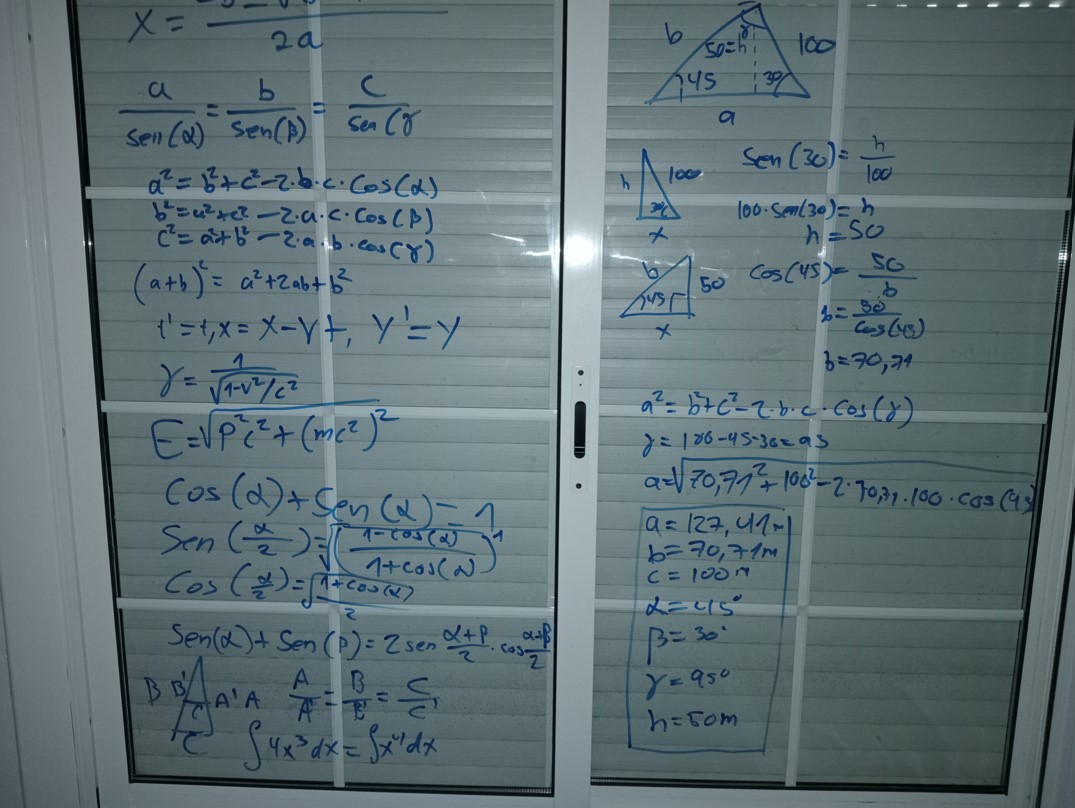 X = 
2a
a/sen(α) = b/sen(β) = c/sen(γ
a² = b²+c²-2·b·c·Cos(α)
b² = a²+c² -2·a·c·Cos(β)
c² = a²+b² -2·a·b·cos(γ)
(a+b)² = a²+2ab+b²
t' = t, x = X-Vt, Y' = Y
γ = 1/√(1-v²/c²)
E = √(P²c²+(mc²)²)
Cos(α)+Sen(α) = 1
Sen(α/2) = √((1-cos(α)/1+cos(α))
Cos(α/2) = √(1+cos(α)/2)
Sen(α)+Sen(β) = 2sen α+β/2 · cos α+β/2
B B' A' A A/A' = B/B' = C/C'
C'
C
∫4x³dx = ∫x⁴dx
b γ 50=h 100
45 30
a
h 100 Sen(30) = h/100
30 100·Sen(30) = h
x h = 50
b 50 Cos(45) = 50/b
45 b = 50/cos(45)
x b = 70,71
a² = b²+c²-2·b·c·Cos(γ)
γ = 180-45-30 = 95
a = √70,71²+100²-2·70,71·100·cos(95)
a = 127,41m
b = 70,71m
c = 100m
α = 45°
β = 30°
γ = 95°
h = 50m